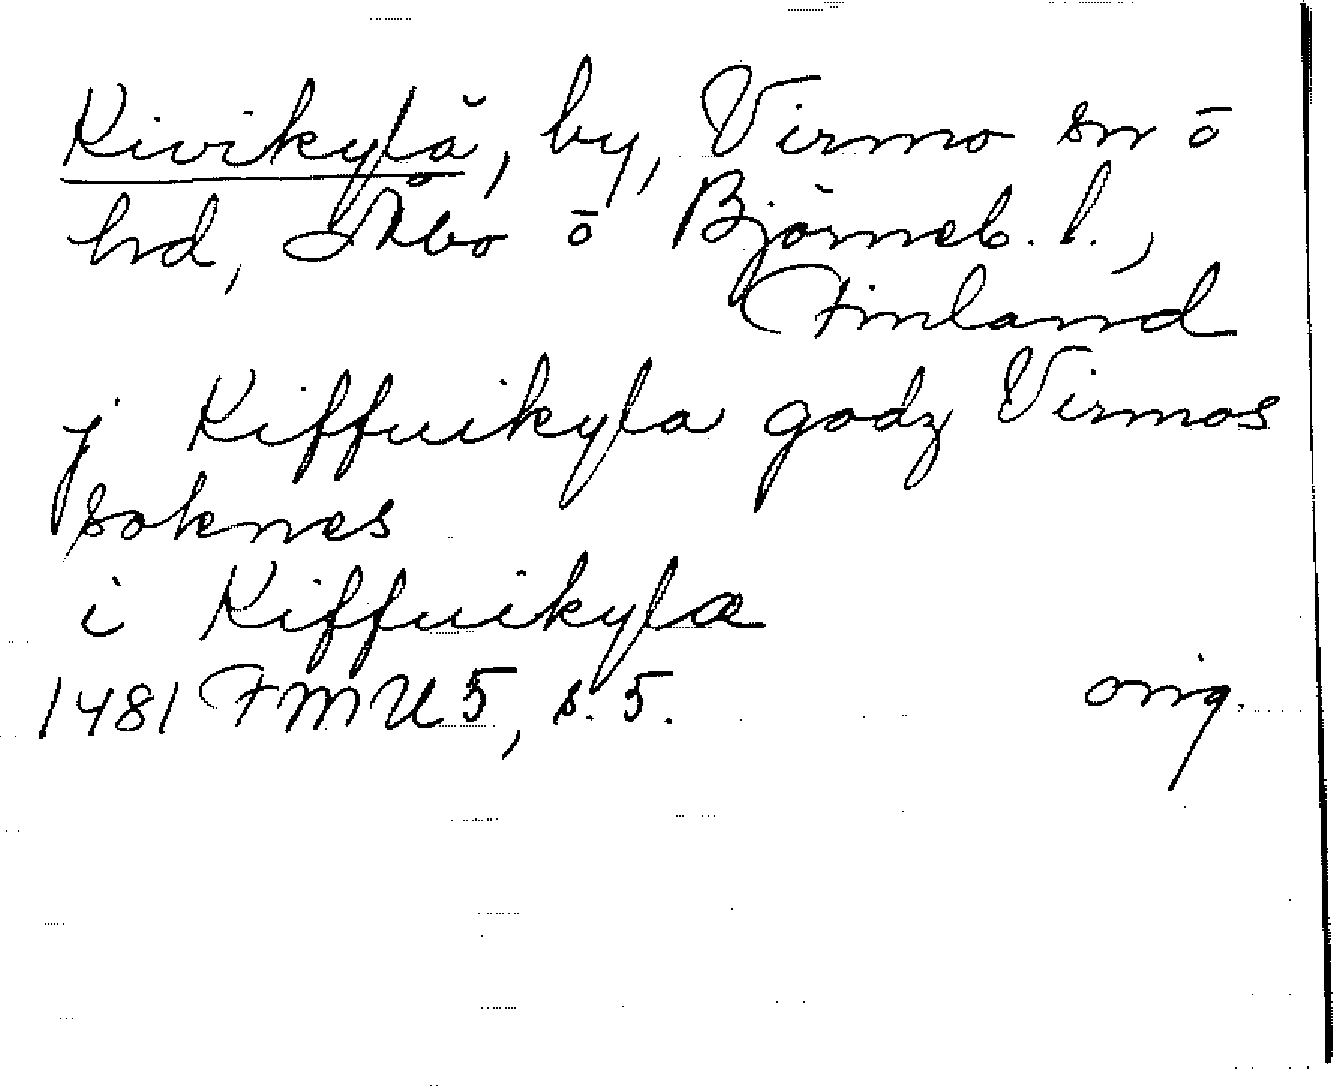 Kivikylä, by, Virmo sn ō
hd, Åbo ō Björneb. l.,
Finland
j Kiffuikyla godz Virmos
soknes
i Kiffuikylæ
1481 FMU 5, s. 5. orig.